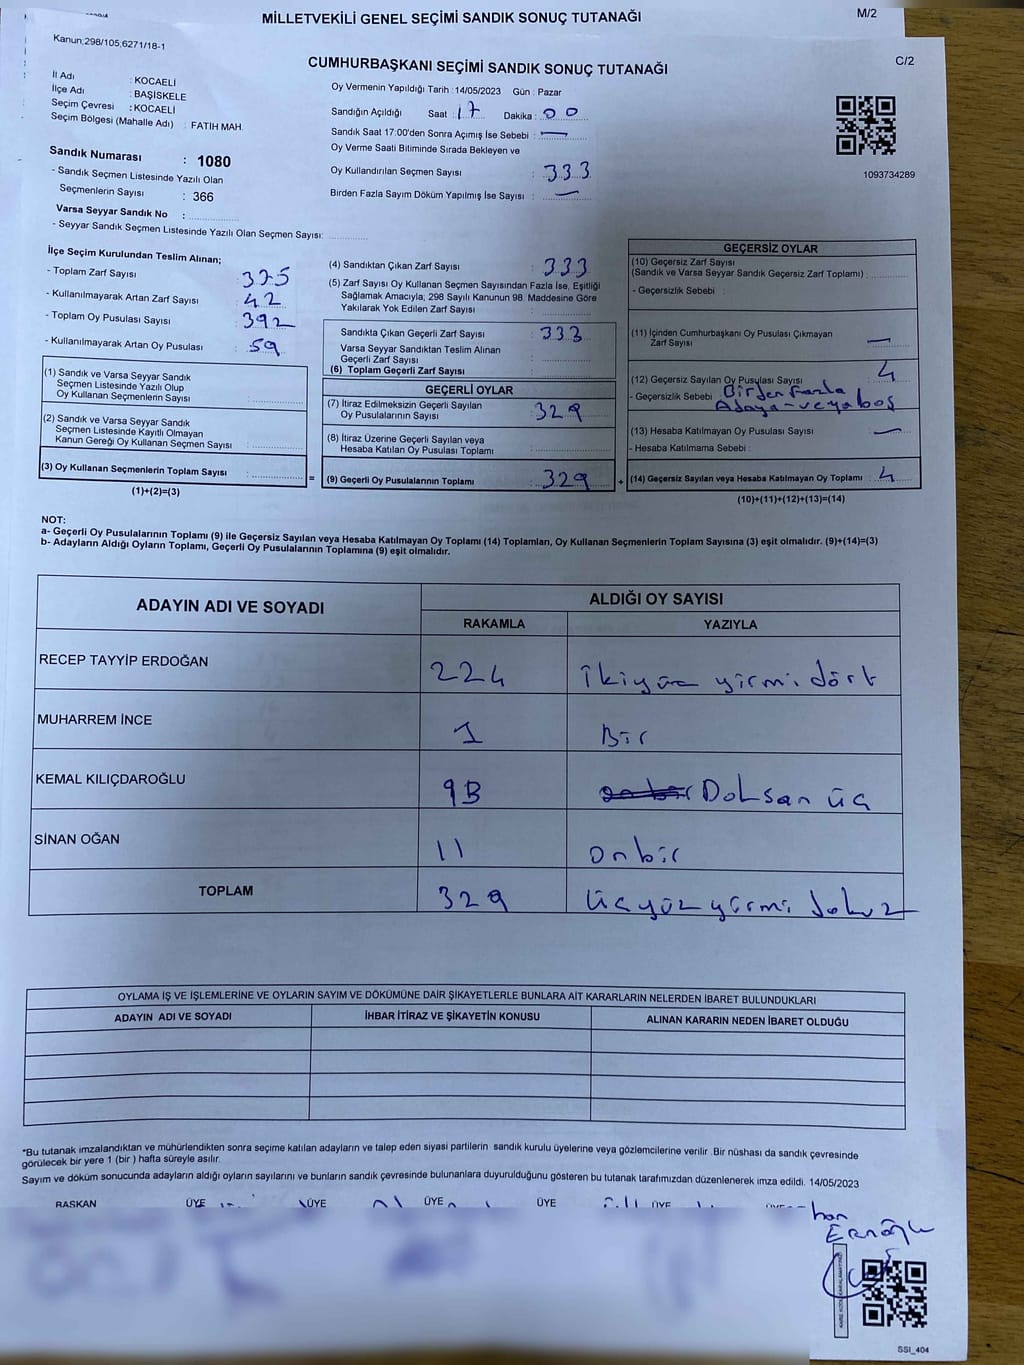 MİLLETVEKİLİ GENEL SEÇİMİ SANDIK SONUÇ TUTANAĞI
M/2
Kanun:298/105,6271/18-1
CUMHURBAŞKANI SEÇİMİ SANDIK SONUÇ TUTANAĞI
C/2
İl Adı : KOCAELİ
İlçe Adı : BAŞİSKELE
Seçim Çevresi : KOCAELİ
Seçim Bölgesi (Mahalle Adı) : FATİH MAH.
Sandık Numarası : 1080
- Sandık Seçmen Listesinde Yazılı Olan
Seçmenlerin Sayısı : 366
Varsa Seyyar Sandık No :
- Seyyar Sandık Seçmen Listesinde Yazılı Olan Seçmen Sayısı:
Oy Vermenin Yapıldığı Tarih : 14/05/2023 Gün : Pazar
Sandığın Açıldığı Saat : 17 Dakika : 00
Sandık Saat 17:00'den Sonra Açımış İse Sebebi : —
Oy Verme Saati Bitiminde Sırada Bekleyen ve
Oy Kullandırılan Seçmen Sayısı : 333
Birden Fazla Sayım Döküm Yapılmış İse Sayısı : —
1093734289
İlçe Seçim Kurulundan Teslim Alınan;
- Toplam Zarf Sayısı : 375
- Kullanılmayarak Artan Zarf Sayısı : 42
- Toplam Oy Pusulası Sayısı : 392
- Kullanılmayarak Artan Oy Pusulası : 59
(1) Sandık ve Varsa Seyyar Sandık
Seçmen Listesinde Yazılı Olup
Oy Kullanan Seçmenlerin Sayısı :
(2) Sandık ve Varsa Seyyar Sandık
Seçmen Listesinde Kayıtlı Olmayan
Kanun Gereği Oy Kullanan Seçmen Sayısı :
(3) Oy Kullanan Seçmenlerin Toplam Sayısı :
(1)+(2)=(3)
=
(4) Sandıktan Çıkan Zarf Sayısı : 333
(5) Zarf Sayısı Oy Kullanan Seçmen Sayısından Fazla İse, Eşitliği
Sağlamak Amacıyla; 298 Sayılı Kanunun 98. Maddesine Göre
Yakılarak Yok Edilen Zarf Sayısı :
Sandıkta Çıkan Geçerli Zarf Sayısı : 333
Varsa Seyyar Sandıktan Teslim Alınan
Geçerli Zarf Sayısı :
(6) Toplam Geçerli Zarf Sayısı :
GEÇERLİ OYLAR
(7) İtiraz Edilmeksizin Geçerli Sayılan
Oy Pusulalarının Sayısı : 329
(8) İtiraz Üzerine Geçerli Sayılan veya
Hesaba Katılan Oy Pusulası Toplamı :
(9) Geçerli Oy Pusulalarının Toplamı : 329
+
GEÇERSİZ OYLAR
(10) Geçersiz Zarf Sayısı
(Sandık ve Varsa Seyyar Sandık Geçersiz Zarf Toplamı) :
- Geçersizlik Sebebi :
(11) İçinden Cumhurbaşkanı Oy Pusulası Çıkmayan
Zarf Sayısı : —
(12) Geçersiz Sayılan Oy Pusulası Sayısı : 4
- Geçersizlik Sebebi : Birden Fazla
Adaya-veya boş
(13) Hesaba Katılmayan Oy Pusulası Sayısı : —
- Hesaba Katılmama Sebebi :
(14) Geçersiz Sayılan veya Hesaba Katılmayan Oy Toplamı : 4
(10)+(11)+(12)+(13)=(14)
NOT:
a- Geçerli Oy Pusulalarının Toplamı (9) ile Geçersiz Sayılan veya Hesaba Katılmayan Oy Toplamı (14) Toplamları, Oy Kullanan Seçmenlerin Toplam Sayısına (3) eşit olmalıdır. (9)+(14)=(3)
b- Adayların Aldığı Oyların Toplamı, Geçerli Oy Pusulalarının Toplamına (9) eşit olmalıdır.
ADAYIN ADI VE SOYADI
ALDIĞI OY SAYISI
RAKAMLA YAZIYLA
RECEP TAYYİP ERDOĞAN 224 ikiyüz yirmi dört
MUHARREM İNCE 1 Bir
KEMAL KILIÇDAROĞLU 93 Doksan üç
SİNAN OĞAN 11 onbir
TOPLAM 329 üçyüz yirmi dokuz
OYLAMA İŞ VE İŞLEMLERİNE VE OYLARIN SAYIM VE DÖKÜMÜNE DAİR ŞİKAYETLERLE BUNLARA AİT KARARLARIN NELERDEN İBARET BULUNDUKLARI
ADAYIN ADI VE SOYADI İHBAR İTİRAZ VE ŞİKAYETİN KONUSU ALINAN KARARIN NEDEN İBARET OLDUĞU
*Bu tutanak imzalandıktan ve mühürlendikten sonra seçime katılan adayların ve talep eden siyasi partilerin sandık kurulu üyelerine veya gözlemcilerine verilir .Bir nüshası da sandık çevresinde
görülecek bir yere 1 (bir ) hafta süreyle asılır.
Sayım ve döküm sonucunda adayların aldığı oyların sayılarını ve bunların sandık çevresinde bulunanlara duyurulduğunu gösteren bu tutanak tarafımızdan düzenlenerek imza edildi. 14/05/2023
BAŞKAN ÜYE ÜYE ÜYE ÜYE ÜYE ÜYE
SSI_404